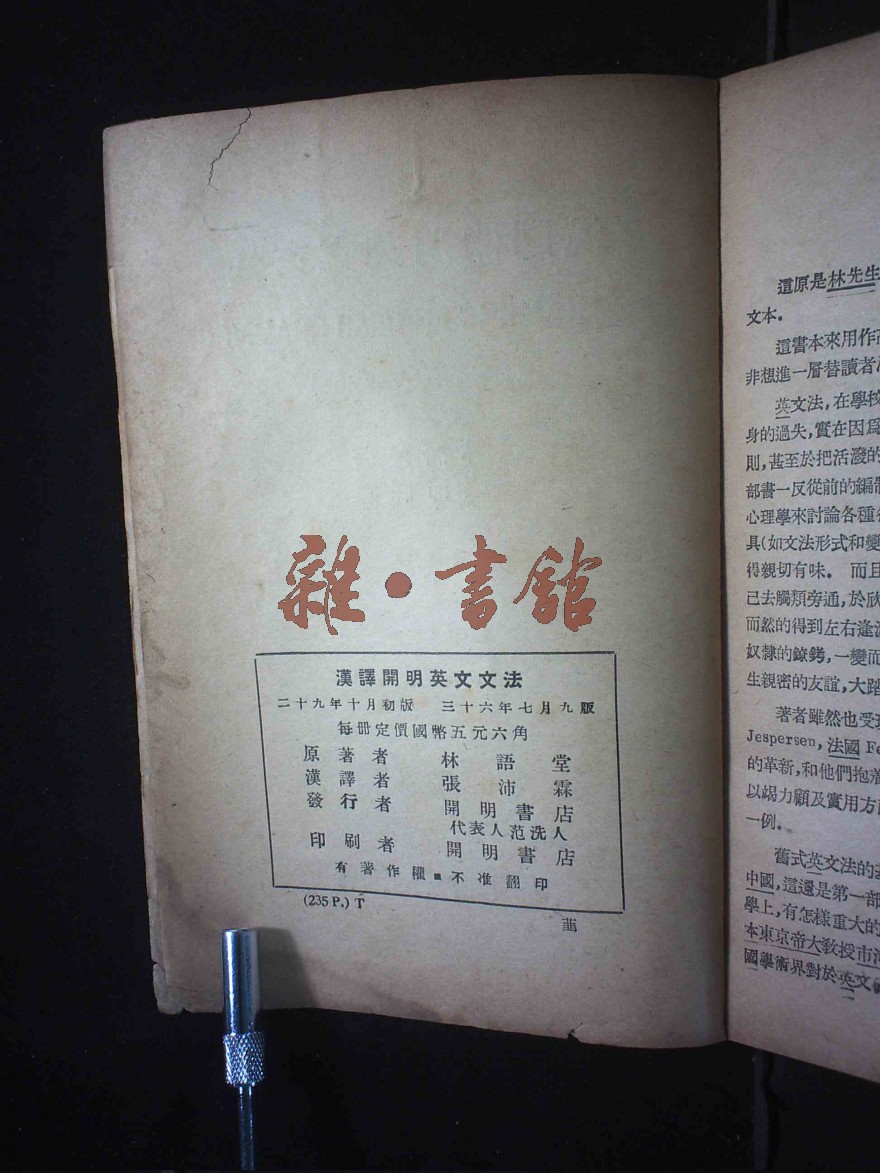 雜•書館
漢譯開明英文文法
二十九年十月初版 三十六年七月九版
每册定價國幣五元六角
原著者 林語堂
漢譯者 張沛霖
發行者 開明書店
代表人范洗人
印刷者 開明書店
有著作權■不准翻印
(235 P.) T
這原是林先生
文本。
這書本來用作
非想進一層替讀者
英文法,在學校
身的過失,實在因爲
則,甚至於把活潑的
部書一反從前的編制
心理學來討論各種
具(如文法形式和變
得親切有味。 而且
己去觸類旁通,於欣
而然的得到左右逢源
奴隸的鐐銬,一變而
生親密的友誼,大踏
著者雖然也受
Jespersen, 法國 Fe
的革新,和他們抱着
以竭力顧及實用方面
一例。
舊式英文法的
中國,這還是第一部
學上,有怎樣重大的
本東京帝大教授市
國學術界對於英文